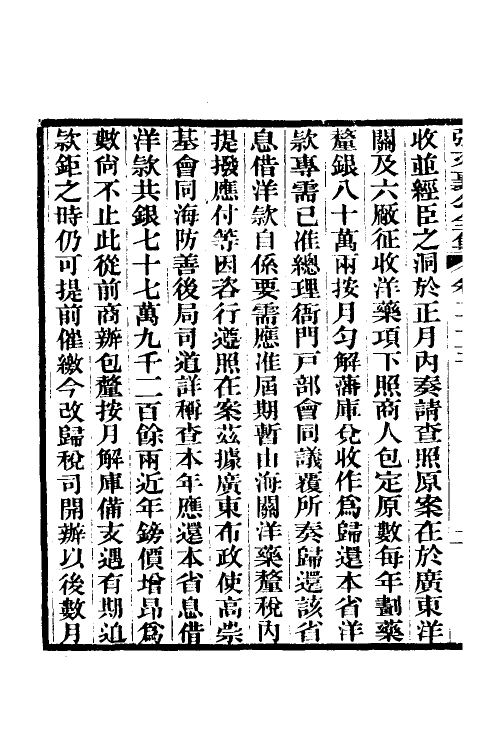 收並經臣之洞於正月內奏請查照原案在於廣東洋
關及六厰征收洋藥項下照商人包定原數每年劃藥
釐銀八十萬兩按月勻解藩庫兌收作爲歸還本省洋
款專需已准總理衙門戸部會同議覆所奏歸還該省
息借洋款自係要需應准屆期暫由海關洋藥釐稅內
提撥應付等因咨行遵照在案茲據廣東布政使高崇
基會同海防善後局司道詳稱查本年應還本省息借
洋款共銀七十七萬九千二百餘兩近年鎊價增昂爲
數尙不止此從前商辦包釐按月解庫備支遇有期迫
款鉅之時仍可提前催繳今改歸稅司開辦以後數月